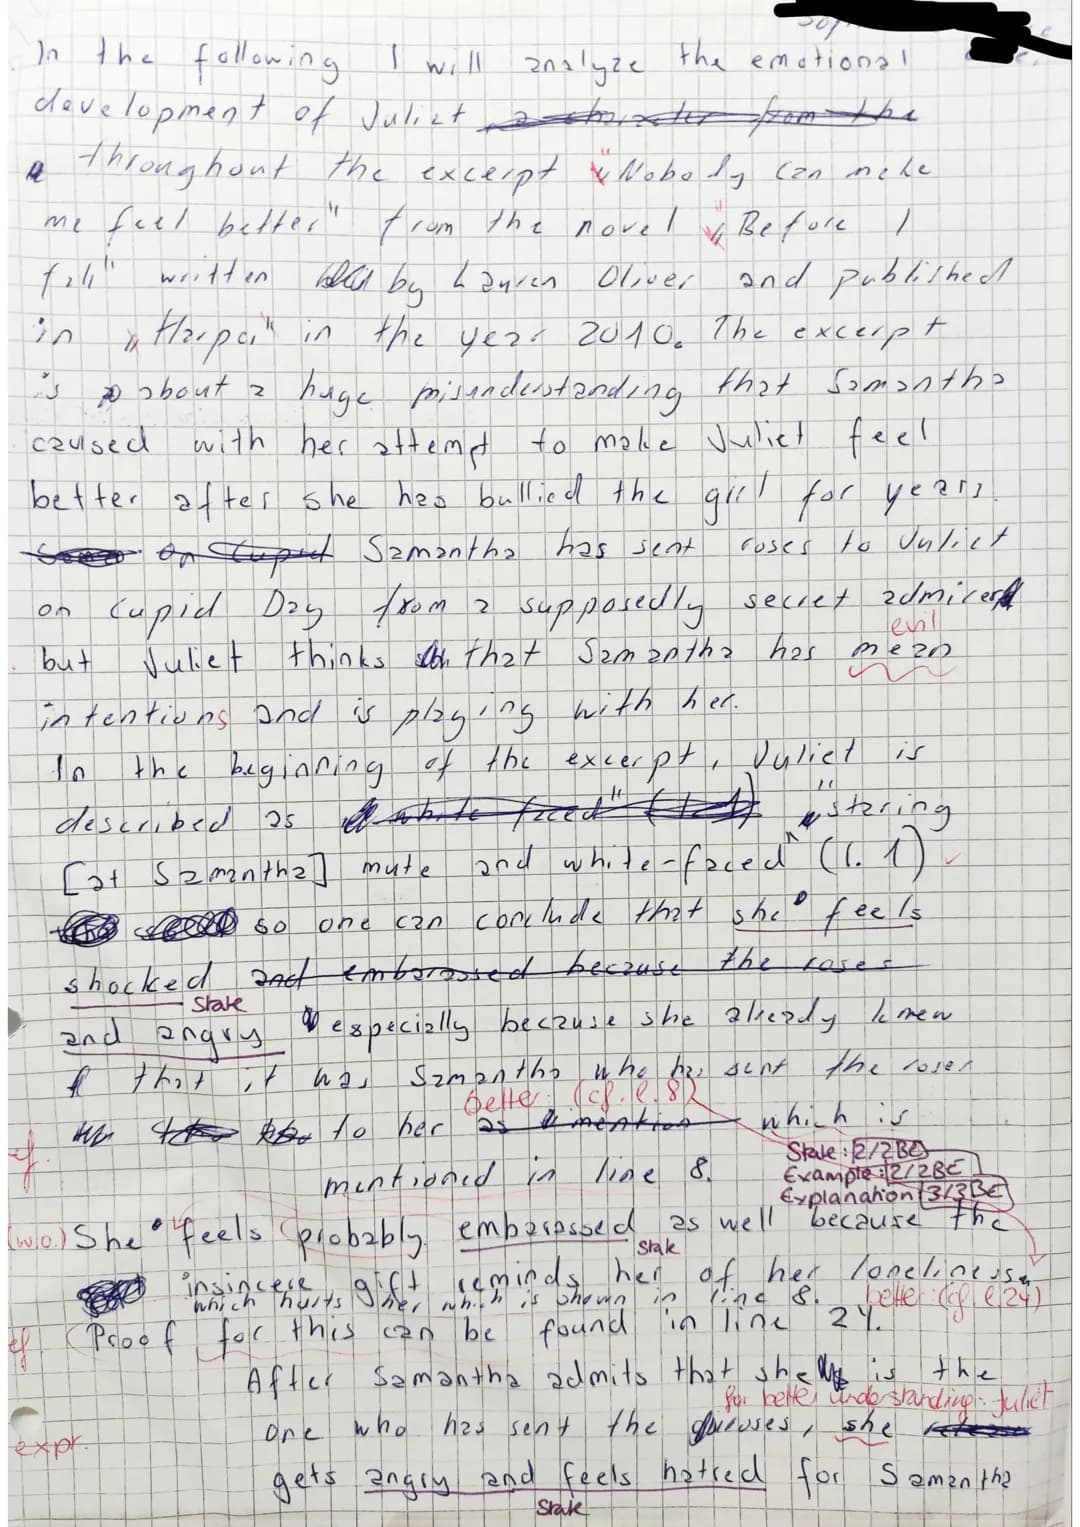 In the following I will analyze the emotional
development of Juliet a character from the
throughout the excerpt "Nobody can make
me feel better" from the novel "Before I
fall" written by Lauren Oliver and published
in "Harper" in the year 2010. The excerpt
is about a huge misunderstanding that Samantha
caused with her attempt to make Juliet feel
better after she has bullied the girl for years.
On Cupid Samantha has sent roses to Juliet
on Cupid Day from a supposedly secret admirer
evil
but Juliet thinks that Samantha has mean
intentions and is playing with her.
In the beginning of the excerpt, Juliet is
described as white faced" (l. 1) "staring
[at Samantha] mute and white-faced" (l. 1)
so one can conclude that she feels
shocked and embarassed because the roses
State
and angry especially because she already knew
that it was Samantha who has sent the roses
better: (cf. l. 8)
to her as mention which is
State: 2/2BE
ef. mentioned in line 8.
Example: 2/2BE
Explanation 3/3BE
(w.o.) She feels probably embarassed as well because the
State
insincere gift reminds her of her loneliness
which hurts her which is shown in line 8. better: (cf. l. 24)
ef (Proof for this can be found in line 24.
After Samantha admits that she is the
for better understanding: Juliet
expr. one who has sent the roses, she
gets angry and feels hatred for Samantha
State